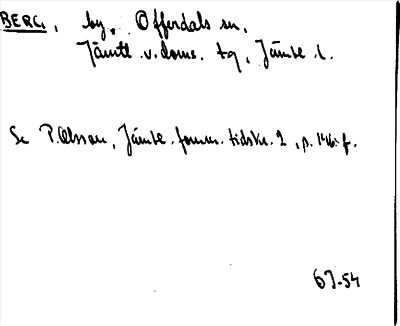 BERG, by, Offerdals sn,
Jämtl. v. doms. tg, Jämtl. l.
Se P. Olsson, Jämtl. fornm. tidskr. 2, p. 146 f.
67-54